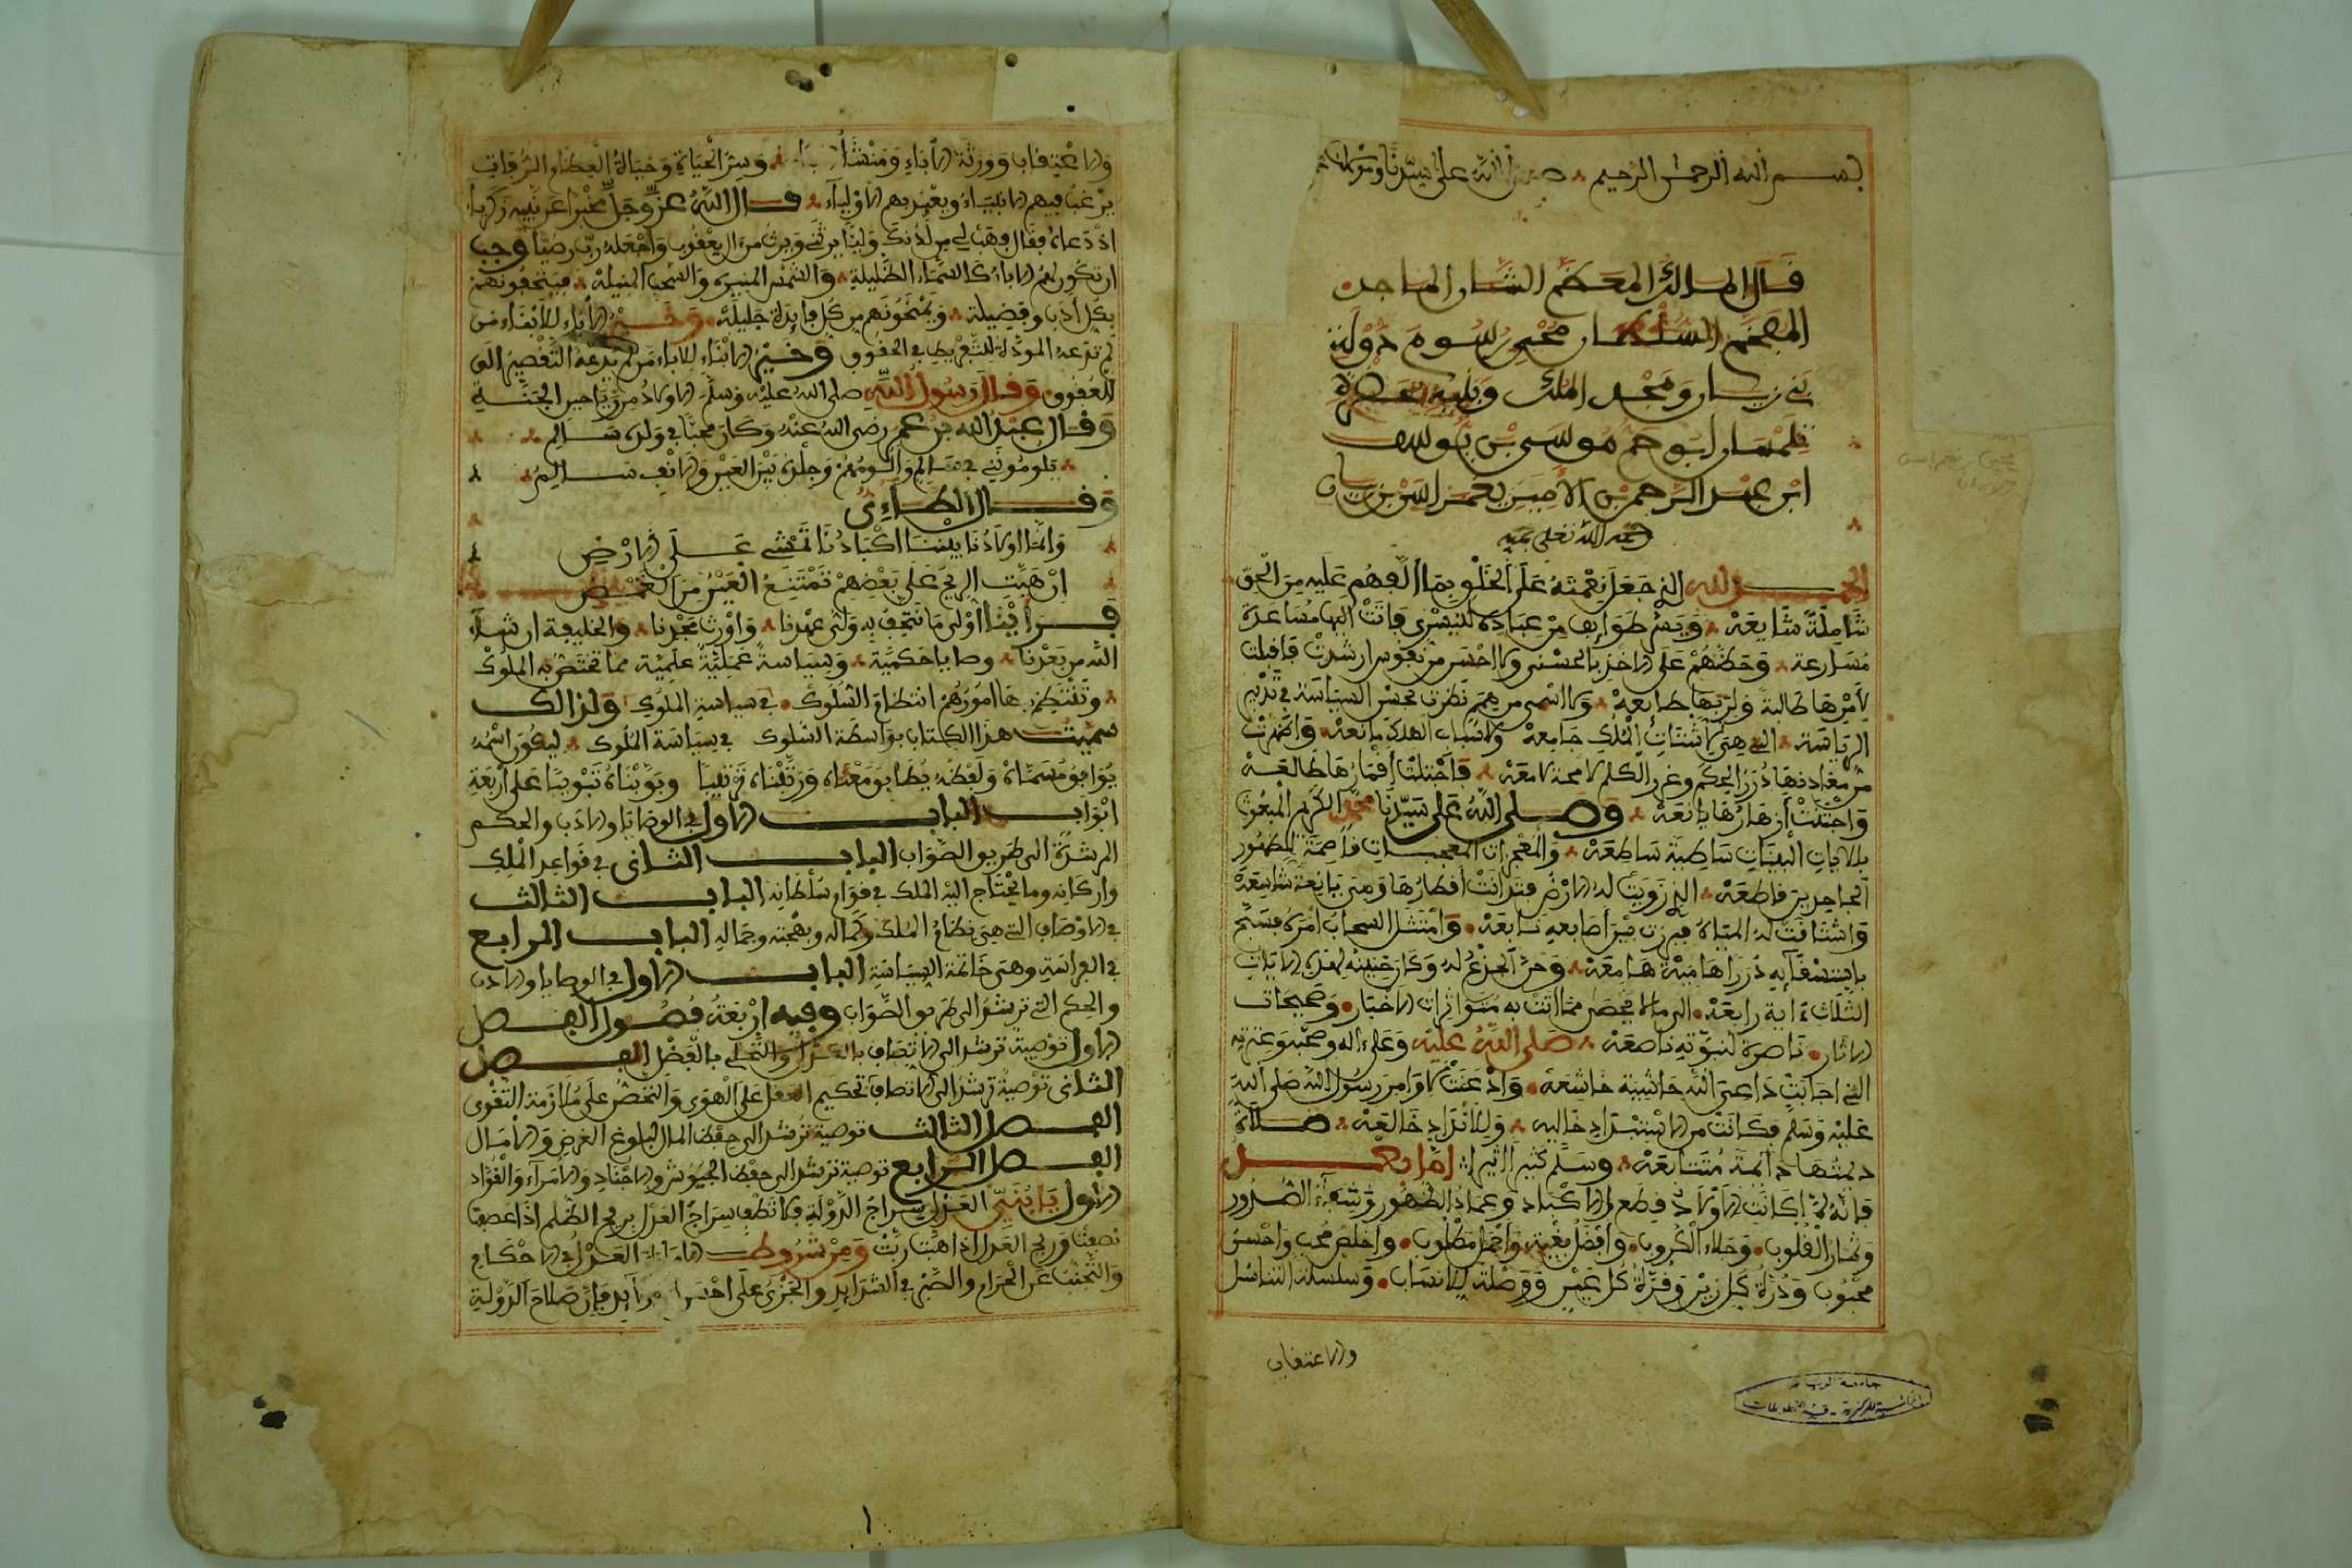 بسم الله الرحمن الرحيم صلى الله على سيدنا ومولانا
قال الملك المعظم الشان الماجد
المفخم السلطان محيي رسوم دولة
بني زيان ومجد الملك
تلمسان أبو حم موسى بن يوسف
ابن عبد الرحمن الأمير يغمراسن بن زيان
رحمة الله تعلى عليه
الحمد لله الذي جعل نعمته على الخلق بما ألفهم عليه من الحق
شاملة شايعة ويسر طوايف من عباده لليسرى فاتت إليها مساعدة
مسارعة وحضهم على الاخذ بالحسنى ولا احسن من نفوس ارشدت فاقبلت
لأمرها طالبة ولربها طايعة ولا اسمى من همم نظرت بحسن السياسة في تدبير
الرياسة التي هي لاشتات الملك جامعة ولاسباب الهلاك مانعة واظهرت
من معادنها درر الحكم وغرر الكلم لامحة لامعة فاجتلت أقمارها طالعة
واجتنت أزهارها يانعة وصلى الله على سيدنا محمد الكريم المبعوث
بالايات البينات ساطية ساطعة والمعجزات المعجمات قاصمة لظهور
الجاحدين قاطعة الذي زويت له الارض فتدانت أقطارها وهي نايية شاسعة
واشتاقت له المياه فبرزت بين أصابعه نابعة وامتثل السحاب أمره فسح
باستسقايه دررا هامية هامعة وحن الجذع له وكان حنينه لهذه الايات
الثلاث ءاية رابعة الى ما لا يحصى مما اتت به متواترات الاخبار وصحيحات
الاثار ناصرة لنبوته ناصعة صلى الله عليه وعلىءاله وصحبه وعترته
التي اجابت داعي الله خاشية خاشعة واذعنت لاوامر رسول الله صلى الله
عليه وسلم فكانت من الاستبداد خالية وللانداد خالعة صلاة
ديمتها دايمة متتابعة وسلم كثيرا اثيرا اما بعد
فانه لما كانت الاولاد قطع الاكباد وعماد الظهور وشفاء الصدور
وثمار القلوب وجلاء الكروب وأفضل بغية وأجمل مطلوب واخلص محب واحسن
محبوب ودرة كل زين وقرة كل عين ووصلة للانساب وسلسلة التناسل
والاعتقاب
جامعة الرياض
المكتبة المركزية - قسم المخطوطات
والاعتقاب وورثة الأباء ومنشأ وسر الحياة وحبالة العطاء والرفات
يرغب فيهم الانبياء ويغتبر بهم الاولياء قال الله عز وجل مخبرا عن نبيه زكرياء
اذ دعاه فقال فهب لي من لدنك وليا يرثني ويرث من ال يعقوب واجعله رب رضيا وجب
ان تكون لهم الاباء كالسماء الظليلة والشمس المنيرة والسحب المنيلة فيتحفونهم
بكل أدب وفضيلة ويمنحونهم من كل فايدة جليلة وخير الأباء للأبناء من
لم تدعه المودة للتفريط في الحقوق وخير الابناء للاباء من لم يدعه التقصير الى
العقوق وقال رسول الله صلى الله عليه وسلم الاولاد من رياحين الجنة
وقال عبد الله بن عمر رضي الله عنه وكان محبا في ولده سالم
يلومونني في سالم وألومهم وجلدة بين العين والانف سالم
وقال الطاءي
وانما اولادنا بيننا اكبادنا تمشي على الارض
ان هبت الريح على بعضهم تمتنع العين من الغمض
فرأينا أولى ما نتحف به ولي عهدنا وأورث مجدنا والخليفة ان شاء
الله من بعدنا وصايا حكمية وسياسة عملية علمية مما تختص به الملوك
وتنتظم بها امورهم انتظام السلوك في سياسة الملوك ولذالك
سميت هذا الكتاب بواسطة السلوك في سياسة الملوك ليكون اسمه
يوافق مسماه ولفظه يطابق معناه ورتبناه ترتيبا وبوبناه تبويبا على أربعة
أبواب الباب الاول في الوصايا والادب والحكم
المرشدة الى طريق الصواب الباب الثاني في قواعد الملك
واركانه وما يحتاج اليه الملك في قوام سلطانه الباب الثالث
في الاوصاف التي هي نظام الملك وكماله وبهجته وجماله الباب الرابع
في الفراسة وهي خاتمة السياسة الباب الاول في الوصايا والادب
والحكم التي ترشد الى طريق الصواب وفيه أربعة فصول الفصل
الاول توصية ترشد الى الاتصاف بالعدل والتحلي بالفضل الفصل
الثاني توصية ترشد الى الاتصاف تحكيم العقل على الهوى والتحضض على ملازمة التقوى
الفصل الثالث توصية ترشد الى حفظ المال لبلوغ الغرض والأمال
الفصل الرابع توصية ترشد الى حفظ الجيوش والاجناد والامراء والقواد
الاول يا بني العدل سراج الدولة فلا تطف سراج العدل بريح الظلم اذا عصفت
نصفت وريح العدل اذا هبت ربت ومن شروط العدل في الاحكام
والتجنب عن الحرام والصبر في الشدايد والجزي على احسن فإن صلاح الدولة
١